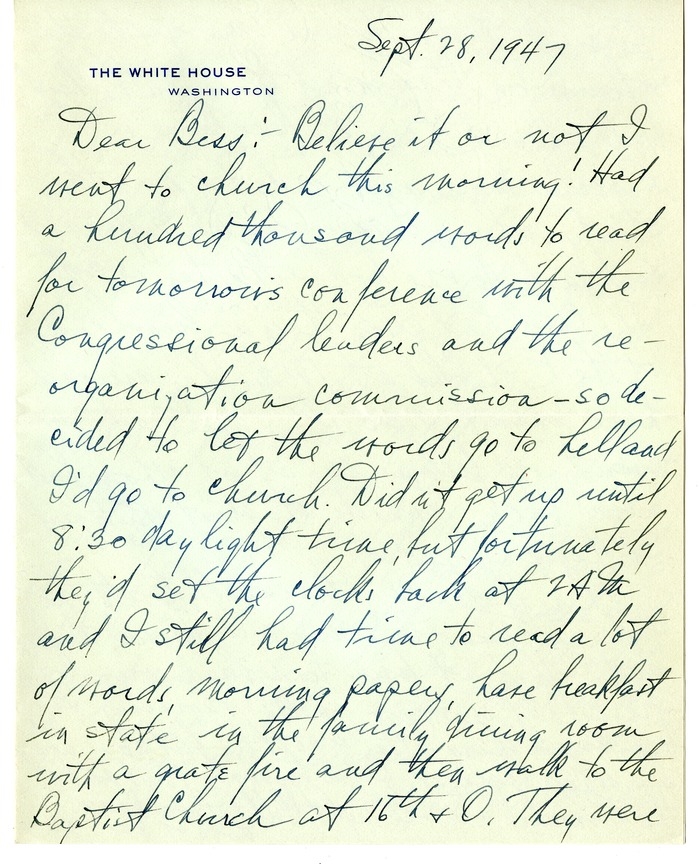 Sept. 28, 1947
THE WHITE HOUSE
WASHINGTON
Dear Bess:- Believe it or not I
went to church this morning! Had
a hundred thousand words to read
for tomorrows conference with the
Congressional leaders and the re-
organization commission - so de-
cided to let the words go to hell and
I'd go to church. Didn't get up until
8:30 day light time, but fortunately
they'd set the clocks back at 2 AM
and I still had time to read a lot
of words, morning papers, have breakfast
in state in the family dining room
with a grate fire and then walk to the
Baptist Church at 16th + O. They were